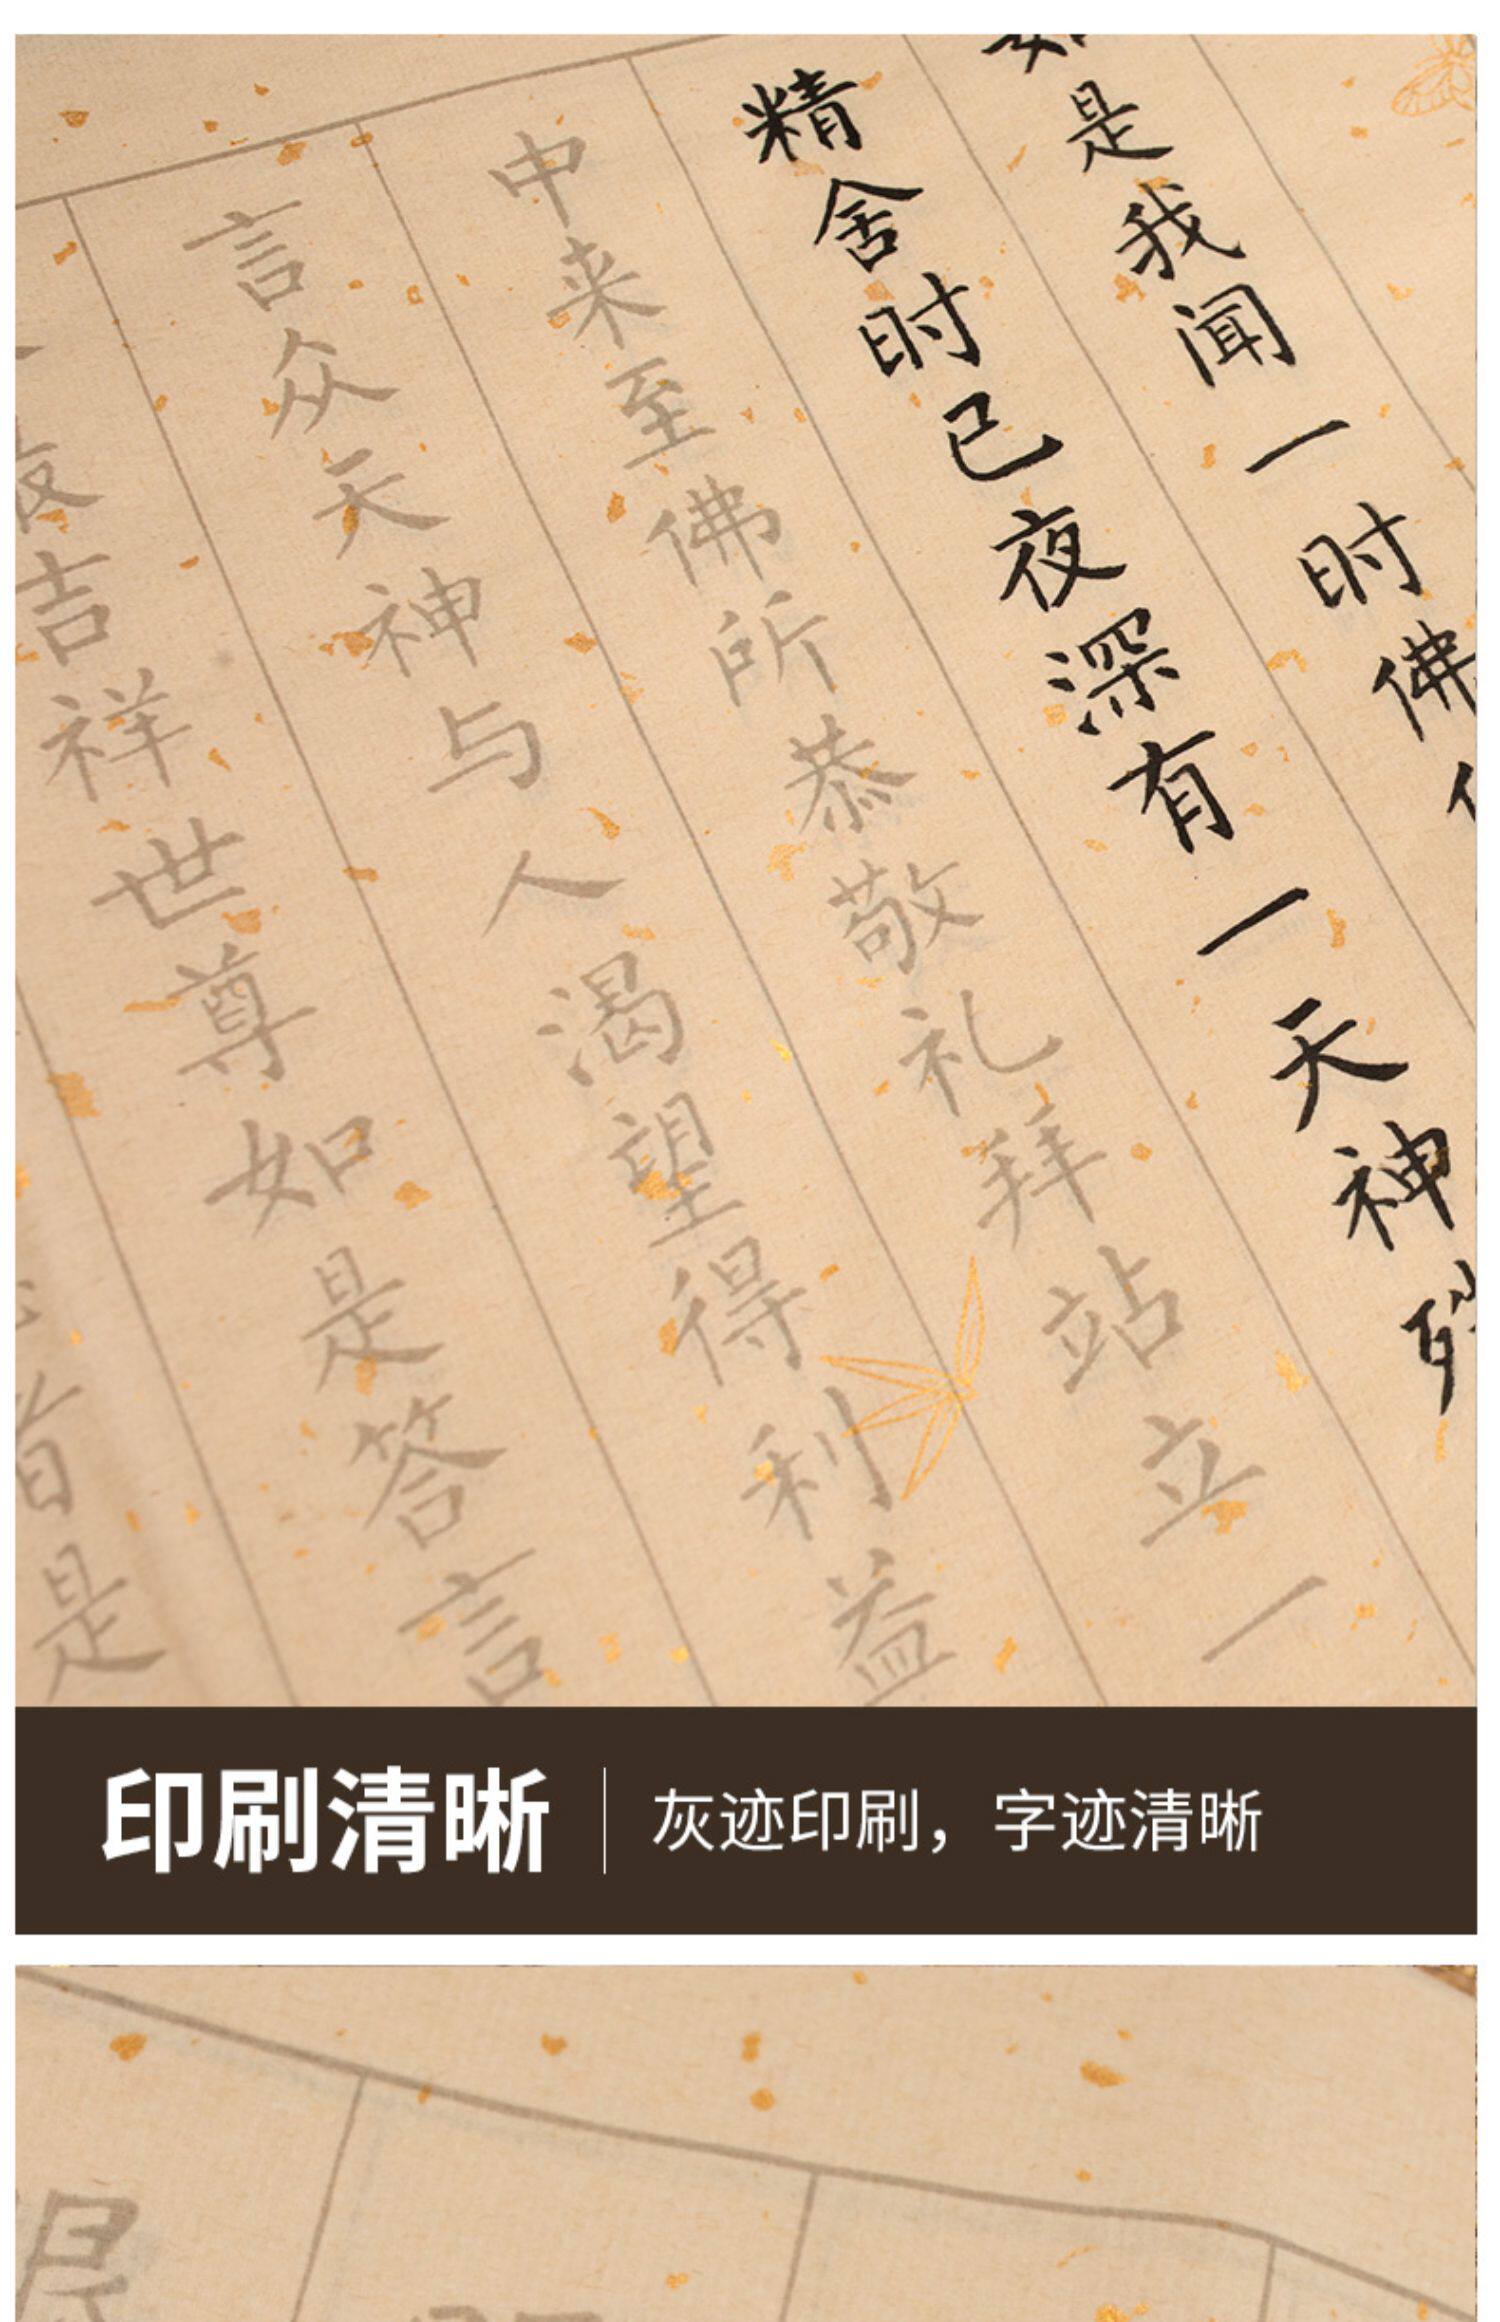 如是我闻一时佛
精舍时已夜深有一天神殊
中来至佛所恭敬礼拜站立一
言众天神与人渴望得利益
最吉祥世尊如是答言
是
印刷清晰
灰迹印刷，字迹清晰